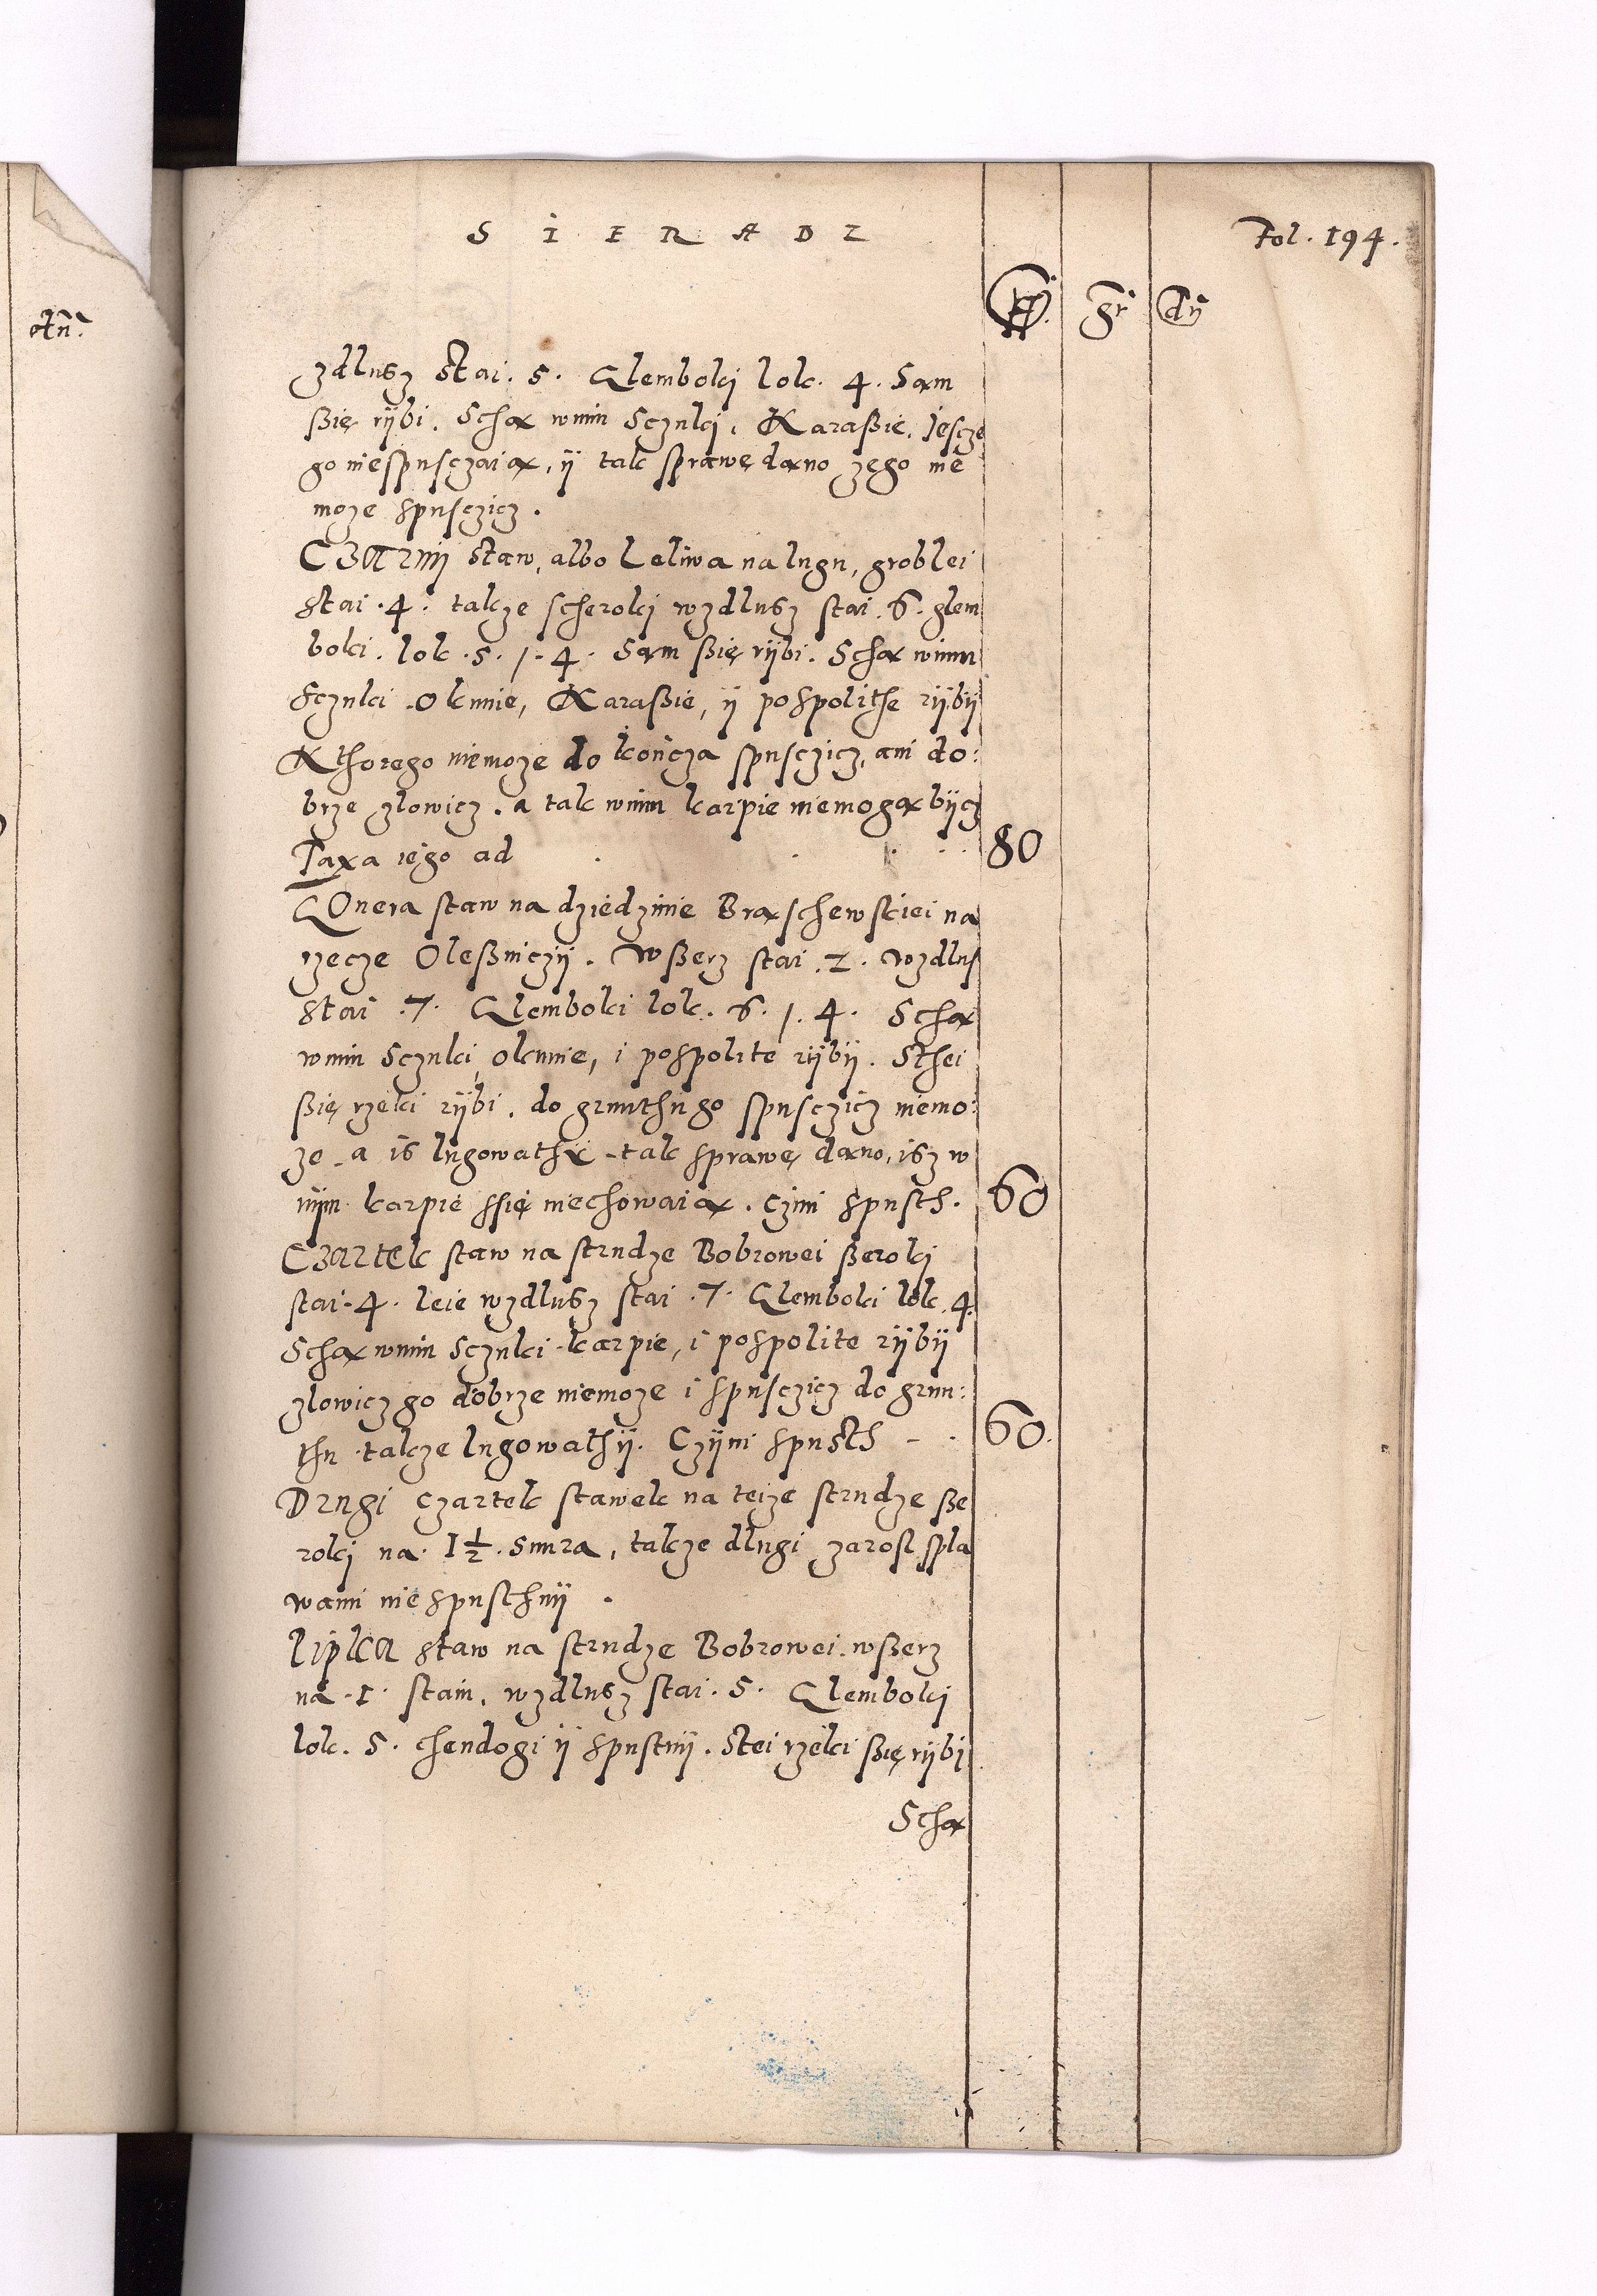 SIERADZ
Fol. 194.
fl. gr dn
zdlusz stai. 5. Glemboki lok. 4. Sam
ßię rÿbi. Schą wnim Sczuki, Karaßie, Jescze
go niespusczaią, ÿ tak sprawę dano zego nie
moze spusczicz.
CZARNIJ staw, albo Leliwa na lugu, groblei
stai. 4. takze scheroki wzdlusz stai. 6. glem
boki. lok. 5. / . 4. Sam ßię rÿbi. Schą wnim
Sczuki. Okunie, Karaßie, ÿ pospolithe rÿbÿ
Kthorego niemoze do kończa spusczicz, ani do:
brze zlowicz. a tak wnim karpie niemogą bÿcz
Taxa iego ad . . . . . 80
GOnera staw na dziedzinie Brąschewskiei na
rzecze Oleßniczÿ. Wßerz stai. 2. wzdlus
stai. 7. Glemboki lok. 6. / . 4. Schą
wnim Sczuki, okunie, i pospolite rÿbÿ. Sthei
ßię rzeki rÿbi. do grunthu go spusczicz niemo:
ze. a is lugowathi. tak sprawę dano, isz w
nÿm karpie ssię niechowaią. czini spusth. 60
CZARTEk staw na strudze Bobrowei ßeroki
stai. 4. leie wzdlusz stai. 7. Glemboki lok. 4.
Schą wnim Sczuki. karpie, i pospolite rÿbÿ
zlowicz go dobrze niemoze i spusczicz do grun:
thu. takze lugowathÿ. Czÿni spusth - . 60.
DRUgi czartek stawek na teize strudze ße
roki na. 1 1/2. snura, takze dlugi zarosl spla
wami nie spusthnÿ .
LIPKA staw na strudze Bobrowei. wßerz
na. 1. staiu, wzdlusz stai. 5. Glemboki
lok. 5. chendogi ÿ spustnÿ. Stei rzeki ßię rÿbi
Schą